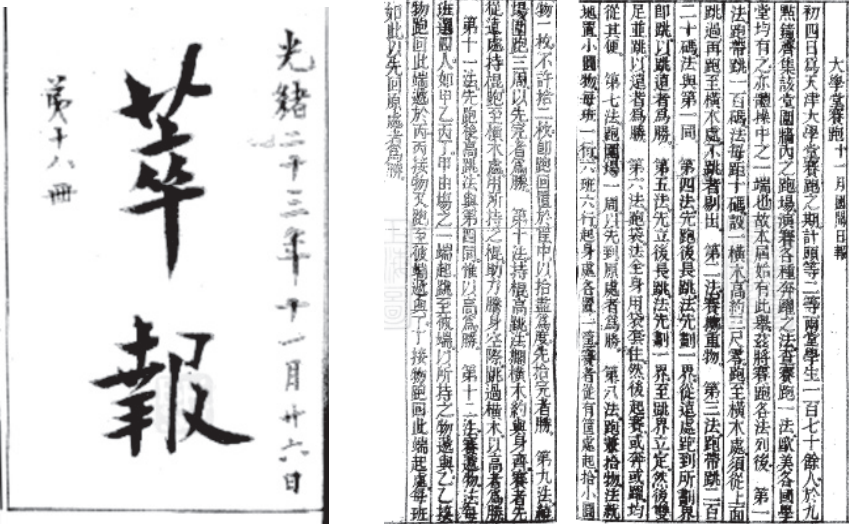 光緒二十三年十一月廿六日
萃報
第十八冊
大學堂賽跑十一月國聞日報
初四日爲天津大學堂賽跑之期計頭等二等兩堂學生一百七十餘人於九
點鐘齊集該堂圍牆內之跑場演賽各種奔躍之法查賽跑一法歐美各國學
堂均有之亦體操中之一端也故本屆始有此舉茲將賽跑各法列後 第一
法跑帶跳一百碼法每距十碼設一橫木高約三尺零跑至橫木處須從上面
跳過再跑至橫木處不跳者剔出 第二法賽擲重物 第三法跑帶跳二百
二十碼法與第一同 第四法先跑後長跳法先劃一界從遠處跑到所劃界
即跳以跳遠者爲勝 第五法先立後長跳法先劃一界至跳界立定然後雙
足並跳以遠者爲勝 第六法跑袋法全身用袋套住然後起賽或奔或躍均
從其便 第七法跑圍場一周以先到原處者爲勝 第八法跑兼拾物法就
地置小圓物每班一行六班六行起身處各置一筐賽者從有筐處起拾小圓
物一枚不許拾二枚即跑回置於筐中以拾盡爲度先拾完者勝 第九法繞
場圍跑三周以先完者爲勝 第十法持棍高跳法攔橫木約與身齊賽者先
從遠處持棍跑至橫木處用所持之棍助力騰身空際跳過橫木以高者爲勝
第十一法先跑後高跳法與第四同惟以高爲勝 第十二法賽遞物法每
班選四人如甲乙丙丁甲由場之一端起跑至彼端以所持之物遞與乙乙接
物跑回此端遞於丙丙接物又跑至彼端遞與丁丁接物跑回此端起處每班
如此以先回原處者爲勝